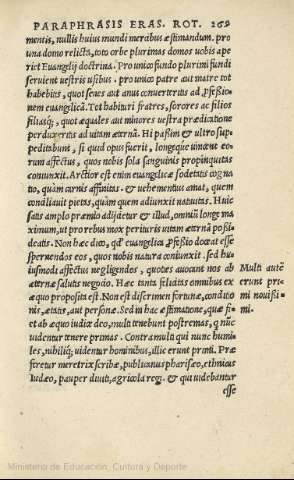 PARAPHRASIS ERAS. ROT. 269
montis, nullis huius mundi mercibus æstimandum. pro
una domo relicta, toto orbe plurimas domos uobis ape
riet Euangelij doctrina. Pro unico fundo plurimi fundi
seruient uestris usibus. pro unico patre aut matre tot
habebitis, quot seues aut anus conuerteritis ad ꝓfeßio
nem euangelicā. Tot habituri fratres, sorores ac filios
filiasq́;, quot æquales aut minores uestra prædicatione
perduxeritis ad uitam æternā. Hi paßim & ultro sup=
peditabunt, si quid opus fuerit, longeq́ue uincent eo=
rum affectus, quos nobis sola sanguinis propinquitas
coniunxit. Arctior est enim euangelicæ sodetatis cogna
tio, quàm carnis affinitas. & uehementius amat, quem
conciliauit pietas, quàm quem adiunxit natiuitas. Huic
satis amplo præmio adijcietur & illud, omniū longe ma
ximum, ut pro rebus mox perituris uitam æternā poßi
deatis. Non hæc dico, qd' euangelica ꝓfeßio doceat esse
spernendos eos, quos nobis natura coniunxit. sed hu
iusmodi affectus negligendos, quoties auocant nos ab
æternæ salutis negōo. Hæc tanta felicitas omnibus ex
æquo proposita est. Non est discrimen fortunæ, conditio
nis, ætatis, aut personæ. Sed in hac æstimatione, quæ fi=
et ab æquo iudice deo, multi tenebunt postremas, q̄ nūc
uidentur tenere primas. Contra multi qui nunc humi
les, nihiliq́; uidentur hominibus, illic erunt primi. Præ
feretur meretrix scribæ, publicanus pharisæo, ethnicus
Iudæo, pauper diuiti, agricola regi. & qui uidebantur
esse
Multi autē
erunt pri=
mi nouißi=
mi.
Ministerio de Educación, Cultura y Deporte